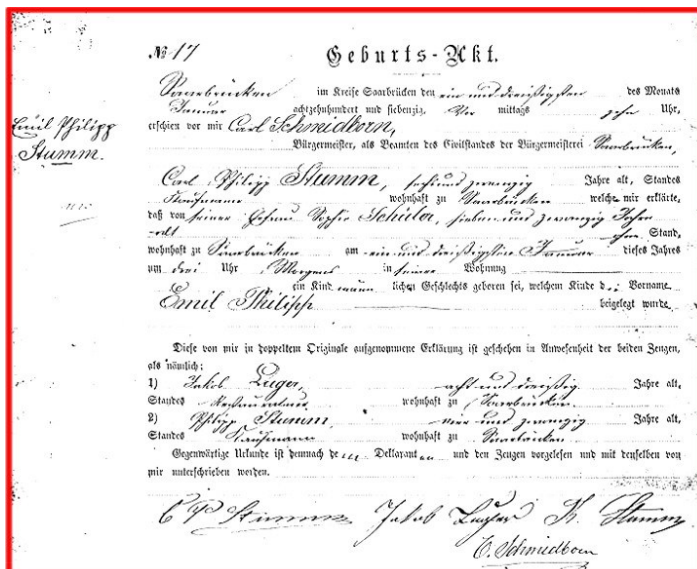 № 17 Geburts-Akt.
Emil Philipp
Stumm.
Saarbrücken im Kreise Saarbrücken den ein und dreißigsten des Monats
Januar achtzehnhundert und siebenzig, Vor mittags zehn Uhr,
erschien vor mir Carl Schmidborn,
Bürgermeister, als Beamten des Civilstandes der Bürgermeisterei Saarbrücken,
Carl Philipp Stumm, sechs und zwanzig Jahre alt, Standes
Kaufmann wohnhaft zu Saarbrücken welcher mir erklärte,
daß von seiner Ehefrau Sophie Schüler, sieben und zwanzig Jahre
alt ohne Stand,
wohnhaft zu Saarbrücken am ein und dreißigsten Januar dieses Jahres
um drei Uhr Morgens in seiner Wohnung
ein Kind männ lichen Geschlechts geboren sei, welchem Kinde Vorname
Emil Philipp beigelegt wurde.
Diese von mir in doppeltem Originale aufgenommene Erklärung ist geschehen in Anwesenheit der beiden Zeugen,
als nämlich:
1) Jakob acht und dreißig Jahre alt,
Standes wohnhaft zu Saarbrücken
2) Philipp Stumm, vier und zwanzig Jahre alt,
Standes Kaufmann wohnhaft zu Saarbrücken
Gegenwärtige Urkunde ist demnach dem Deklaranten und den Zeugen vorgelesen und mit denselben von
mir unterschrieben worden.
C P Stumm Jakob Stumm
C. Schmidborn